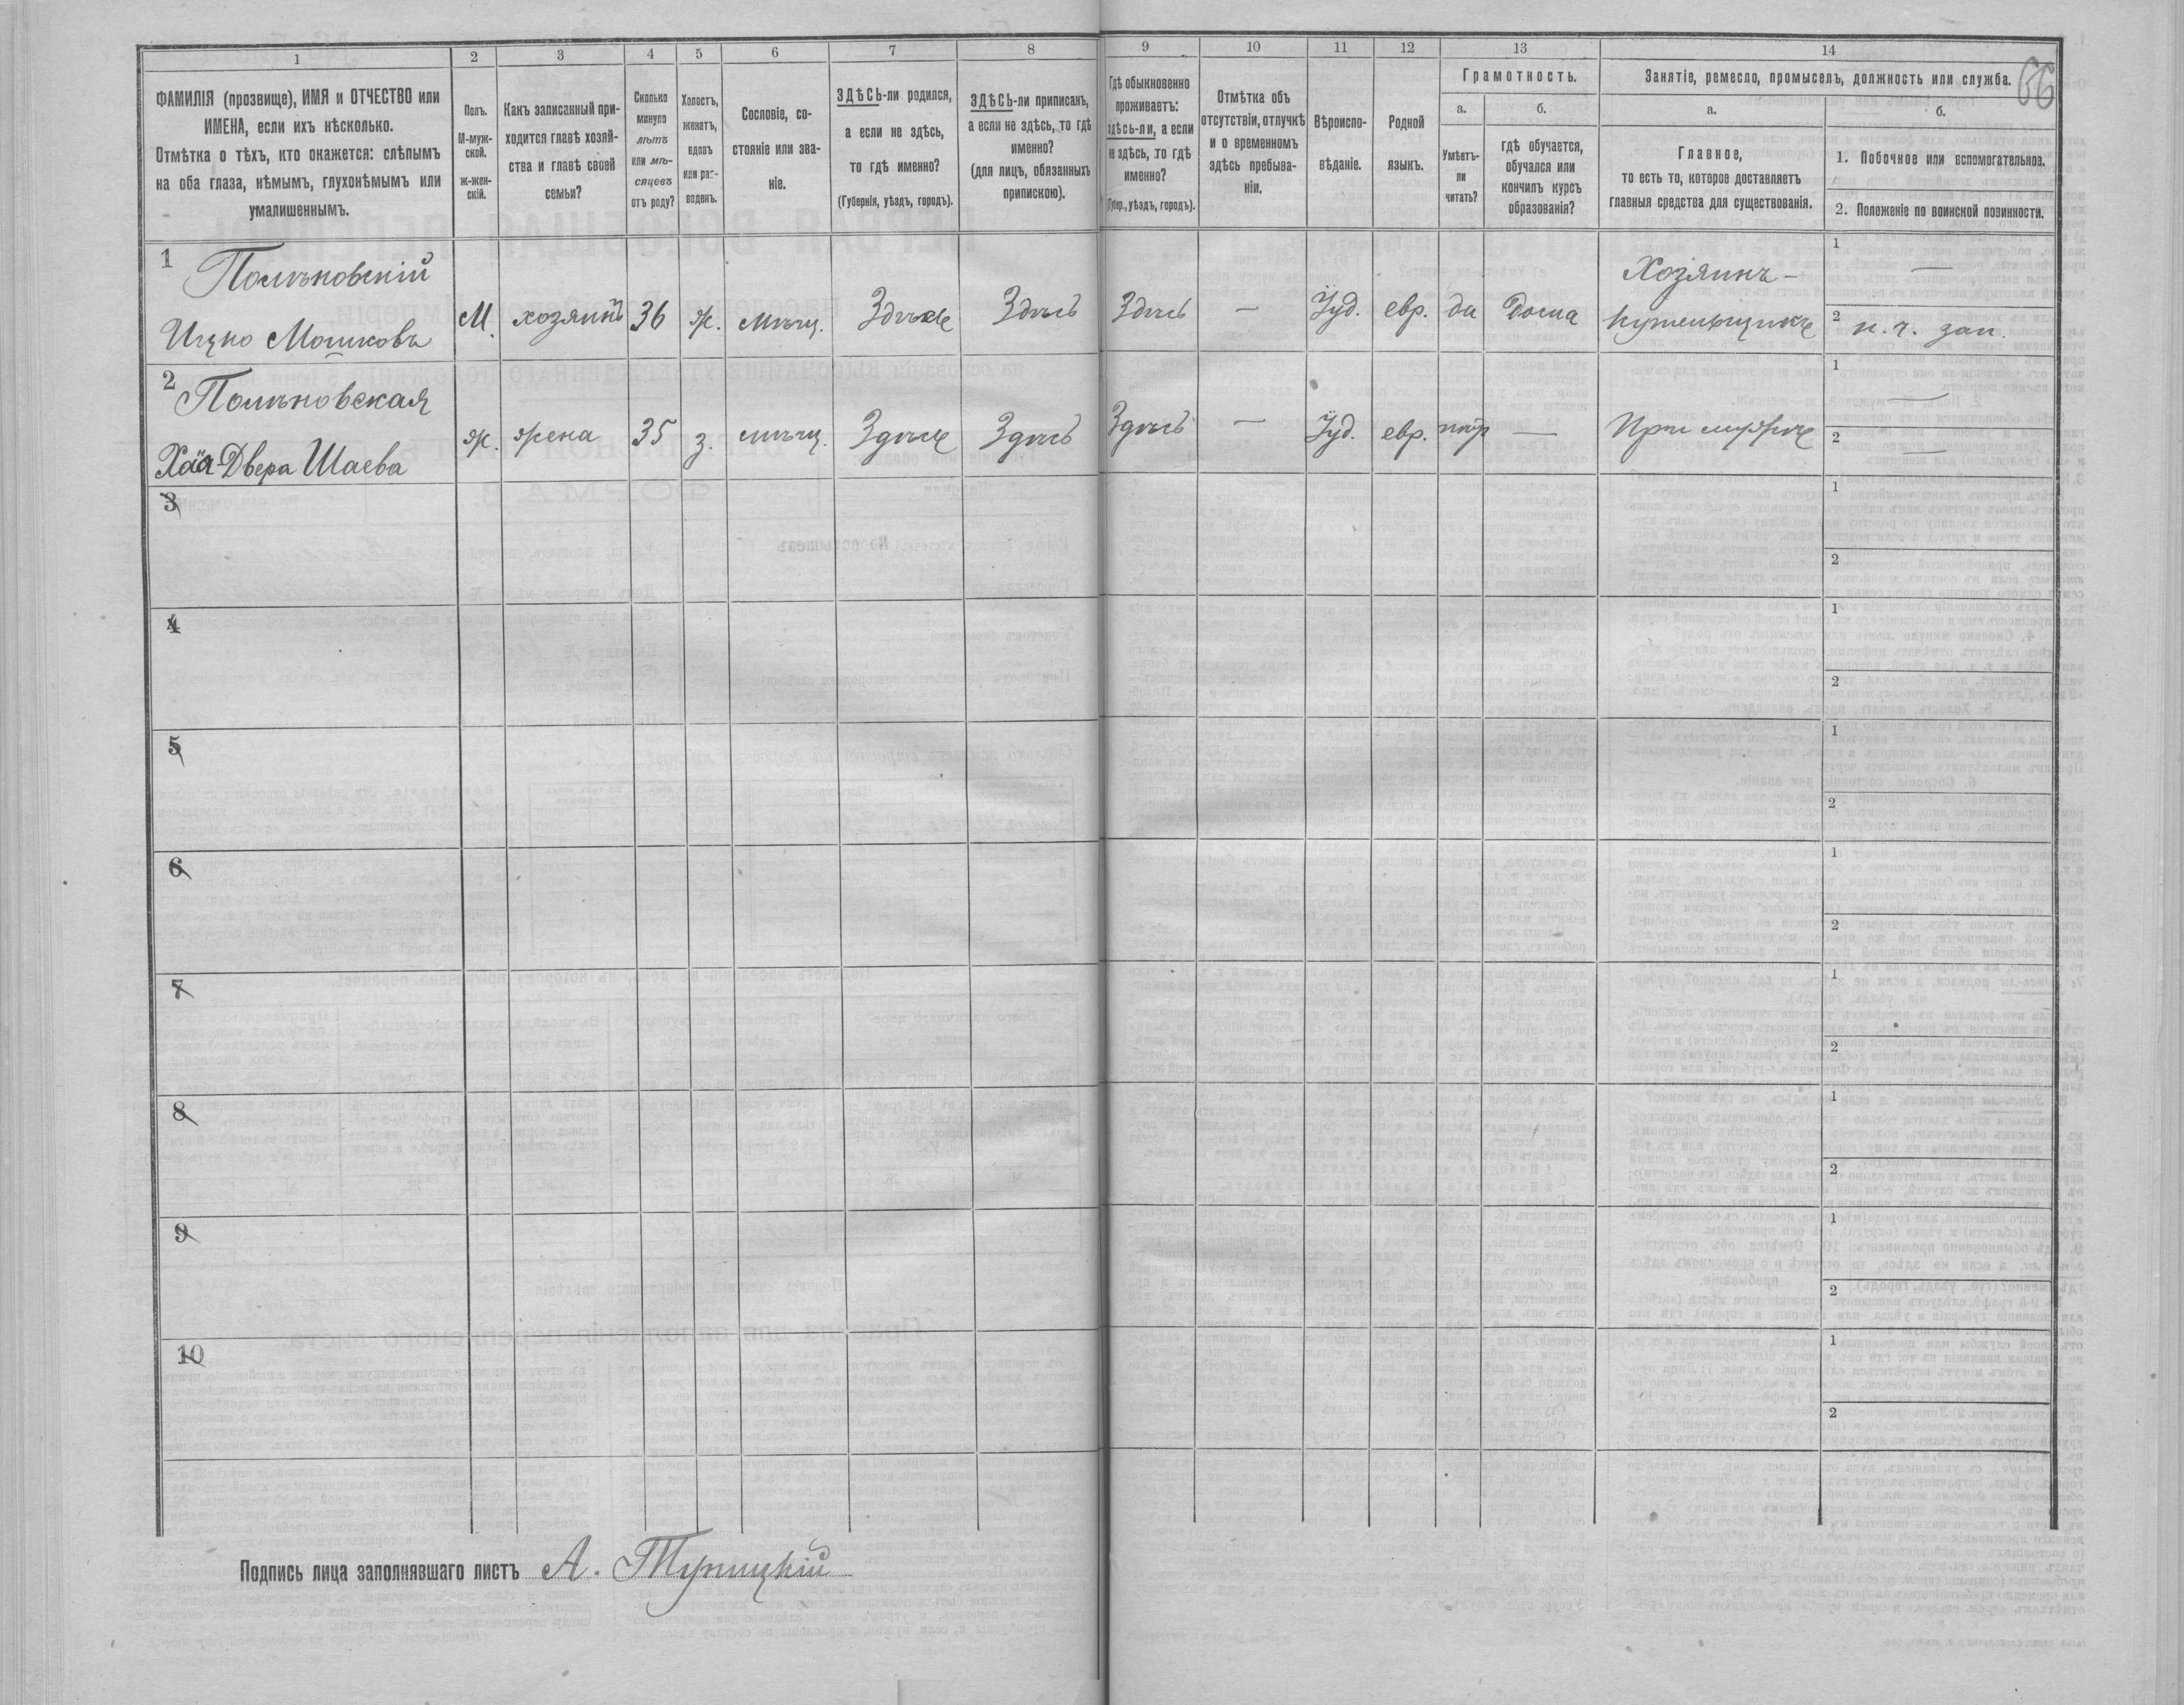 66
1 2 3 4 5 6 7 8 9 10 11 12 13 14
ФАМИЛІЯ (прозвище), ИМЯ и ОТЧЕСТВО или
ИМЕНА, если ихъ нѣсколько.
Отмѣтка о тѣхъ, кто окажется: слѣпымъ
на оба глаза, нѣмымъ, глухонѣмымъ или
умалишеннымъ.
Полъ.
М-муж-
ской.
ж-жен-
скій.
Какъ записанный при-
ходится главѣ хозяй-
ства и главѣ своей
семьи?
Сколько
минуло
лѣтъ
или мѣ-
сяцевъ
отъ роду?
Холостъ,
женатъ,
вдовъ
или раз-
веденъ.
Сословіе, со-
стояніе или зва-
ніе.
ЗДѢСЬ-ли родился,
а если не здѣсь,
то гдѣ именно?
(Губернія, уѣздъ, городъ).
ЗДѢСЬ-ли приписанъ,
а если не здѣсь, то гдѣ
именно?
(для лицъ, обязанныхъ
припискою).
Гдѣ обыкновенно
проживаетъ:
здѣсь-ли, а если
не здѣсь, то гдѣ
именно?
(Губер., уѣздъ, городъ).
Отмѣтка объ
отсутствіи, отлучкѣ
и о временномъ
здѣсь пребыва-
ніи.
Вѣроиспо-
вѣданіе.
Родной
языкъ.
Грамотность.
а.
Умѣетъ-
ли
читать?
б.
гдѣ обучается,
обучался или
кончилъ курсъ
образованія?
Занятіе, ремесло, промыселъ, должность или служба.
а.
Главное,
то есть то, которое доставляетъ
главныя средства для существованія.
б.
1. Побочное или вспомогательное.
2. Положеніе по воинской повинности.
1
Ицко Мошковъ
М. хозяинъ 36 ж. мѣщ. Здѣсь Здѣсь — Іуд. евр. да дома
Хозяинъ-
1 —
2 н. ч. зап.
2
Хая-Двера Шаева
ж. жена 35 з. мѣщ. Здѣсь Здѣсь — Іуд. евр. — При мужѣ
1 —
2 —
3
1
2
4
1
2
5
1
2
6
1
2
7
1
2
8
1
2
9
1
2
10
1
2
Подпись лица заполнявшаго листъ А.